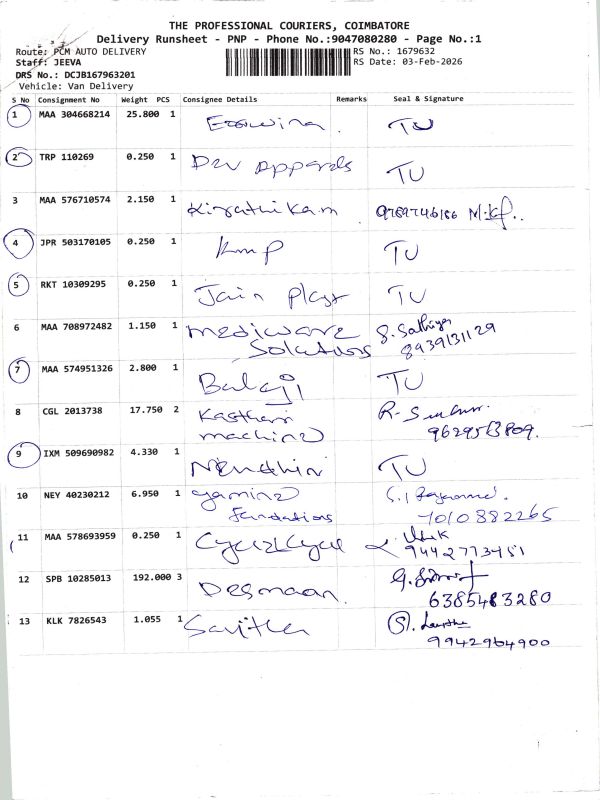 THE PROFESSIONAL COURIERS, COIMBATORE
Delivery Runsheet - PNP - Phone No.:9047080280 - Page No.:1
Route: PCM AUTO DELIVERY
Staff: JEEVA
DRS No.: DCJB167963201
Vehicle: Van Delivery
RS No.: 1679632
RS Date: 03-Feb-2026
S No Consignment No Weight PCS Consignee Details Remarks Seal & Signature
1 MAA 304668214 25.800 1 TU
2 TRP 110269 0.250 1 TU
3 MAA 576710574 2.150 1 Kirathikam 9789746186
4 JPR 503170105 0.250 1 kmp TU
5 RKT 10309295 0.250 1 Jain Plast TU
6 MAA 708972482 1.150 1 mediware S. Sathiya
Solutions 8939131129
7 MAA 574951326 2.800 1 Balaji TU
8 CGL 2013738 17.750 2 Kasthuri
machine
9 IXM 509690982 4.330 1 TU
10 NEY 40230212 6.950 1
7010882265
11 MAA 578693959 0.250 1
12 SPB 10285013 192.000 3 Desmaan
6385483280
13 KLK 7826543 1.055 1
9942964900